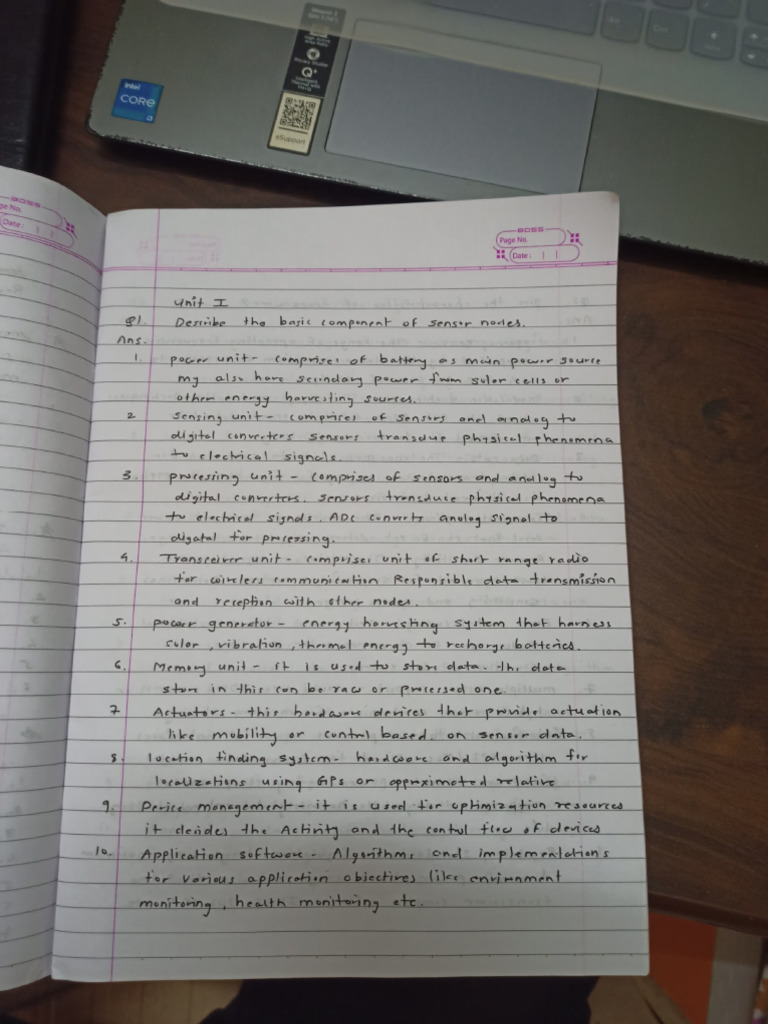 intel
CORE
i3
Q+
eSupport
BOSS
ge No.
Date:
BOSS
Page No.
Date:
Unit I
Q1. Describe the basic component of sensor nodes.
Ans.
1. power unit - comprises of battery as main power source
my also have secindary power from solar cells or
other energy harvesting sources.
2 Sensing unit - comprises of sensors and analog to
digital converters sensors transdue physical phenomena
to electrical signals.
3. processing unit - comprises of sensors and analog to
digital converters. sensors transduce physical phenomena
to electrical signals. ADC converts analog signal to
digatal for processing.
4. Transceiver unit - comprises unit of short range radio
for wireless communication Responsible data transmission
and reception with other nodes.
5. power generator - energy harvesting system that harness
solar, vibration, thermal energy to recharge batteries.
6. Memory unit - it is used to store data. the data
store in this can be raw or processed one.
7 Actuators - this hardware devices that provide actuation
like mobility or control based. on sensor data.
8. location finding system - hardware and algorithm for
localizations using GPs or approximated relative
9. Device management - it is used for optimization resources
it decides the Activity and the control flow of devices
10. Application software - Algorithms and implementations
for various application objectives like envirnment
monitoring, health monitoring etc.